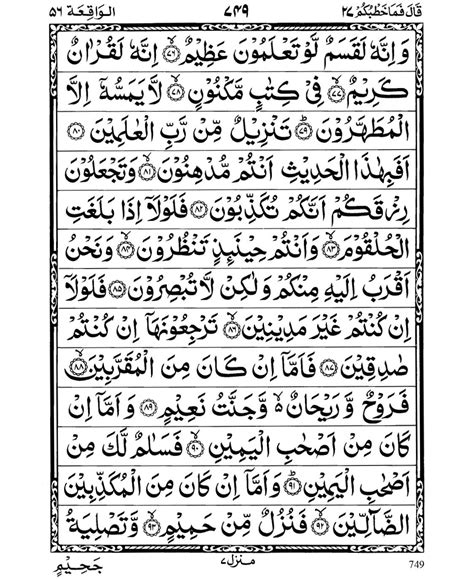 قَالَ فَمَا خَطْبُكُمْ ٢٧ ٧٤٩ الواقعة ٥٦
وَاِنَّهٗ لَقَسَمٌ لَّوْ تَعْلَمُوْنَ عَظِيْمٌ ﴿٧٦﴾ اِنَّهٗ لَقُرْاٰنٌ
كَرِيْمٌ ﴿٧٧﴾ فِيْ كِتٰبٍ مَّكْنُوْنٍ ﴿٧٨﴾ لَّا يَمَسُّهٗٓ اِلَّا
الْمُطَهَّرُوْنَ ﴿٧٩﴾ تَنْزِيْلٌ مِّنْ رَّبِّ الْعٰلَمِيْنَ ﴿٨٠﴾
اَفَبِهٰذَا الْحَدِيْثِ اَنْتُمْ مُّدْهِنُوْنَ ﴿٨١﴾ وَتَجْعَلُوْنَ
رِزْقَكُمْ اَنَّكُمْ تُكَذِّبُوْنَ ﴿٨٢﴾ فَلَوْلَآ اِذَا بَلَغَتِ
الْحُلْقُوْمَ ﴿٨٣﴾ وَاَنْتُمْ حِيْنَئِذٍ تَنْظُرُوْنَ ﴿٨٤﴾ وَنَحْنُ
اَقْرَبُ اِلَيْهِ مِنْكُمْ وَلٰكِنْ لَّا تُبْصِرُوْنَ ﴿٨٥﴾ فَلَوْلَآ
اِنْ كُنْتُمْ غَيْرَ مَدِيْنِيْنَ ﴿٨٦﴾ تَرْجِعُوْنَهَآ اِنْ كُنْتُمْ
صٰدِقِيْنَ ﴿٨٧﴾ فَاَمَّآ اِنْ كَانَ مِنَ الْمُقَرَّبِيْنَ ﴿٨٨﴾
فَرَوْحٌ وَّرَيْحَانٌ ۙ وَّجَنَّتُ نَعِيْمٍ ﴿٨٩﴾ وَاَمَّآ اِنْ
كَانَ مِنْ اَصْحٰبِ الْيَمِيْنِ ﴿٩٠﴾ فَسَلٰمٌ لَّكَ مِنْ
اَصْحٰبِ الْيَمِيْنِ ﴿٩١﴾ وَاَمَّآ اِنْ كَانَ مِنَ الْمُكَذِّبِيْنَ
الضَّآلِّيْنَ ﴿٩٢﴾ فَنُزُلٌ مِّنْ حَمِيْمٍ ﴿٩٣﴾ وَّتَصْلِيَةُ
749 منزل٧ جَحِيْمٍ